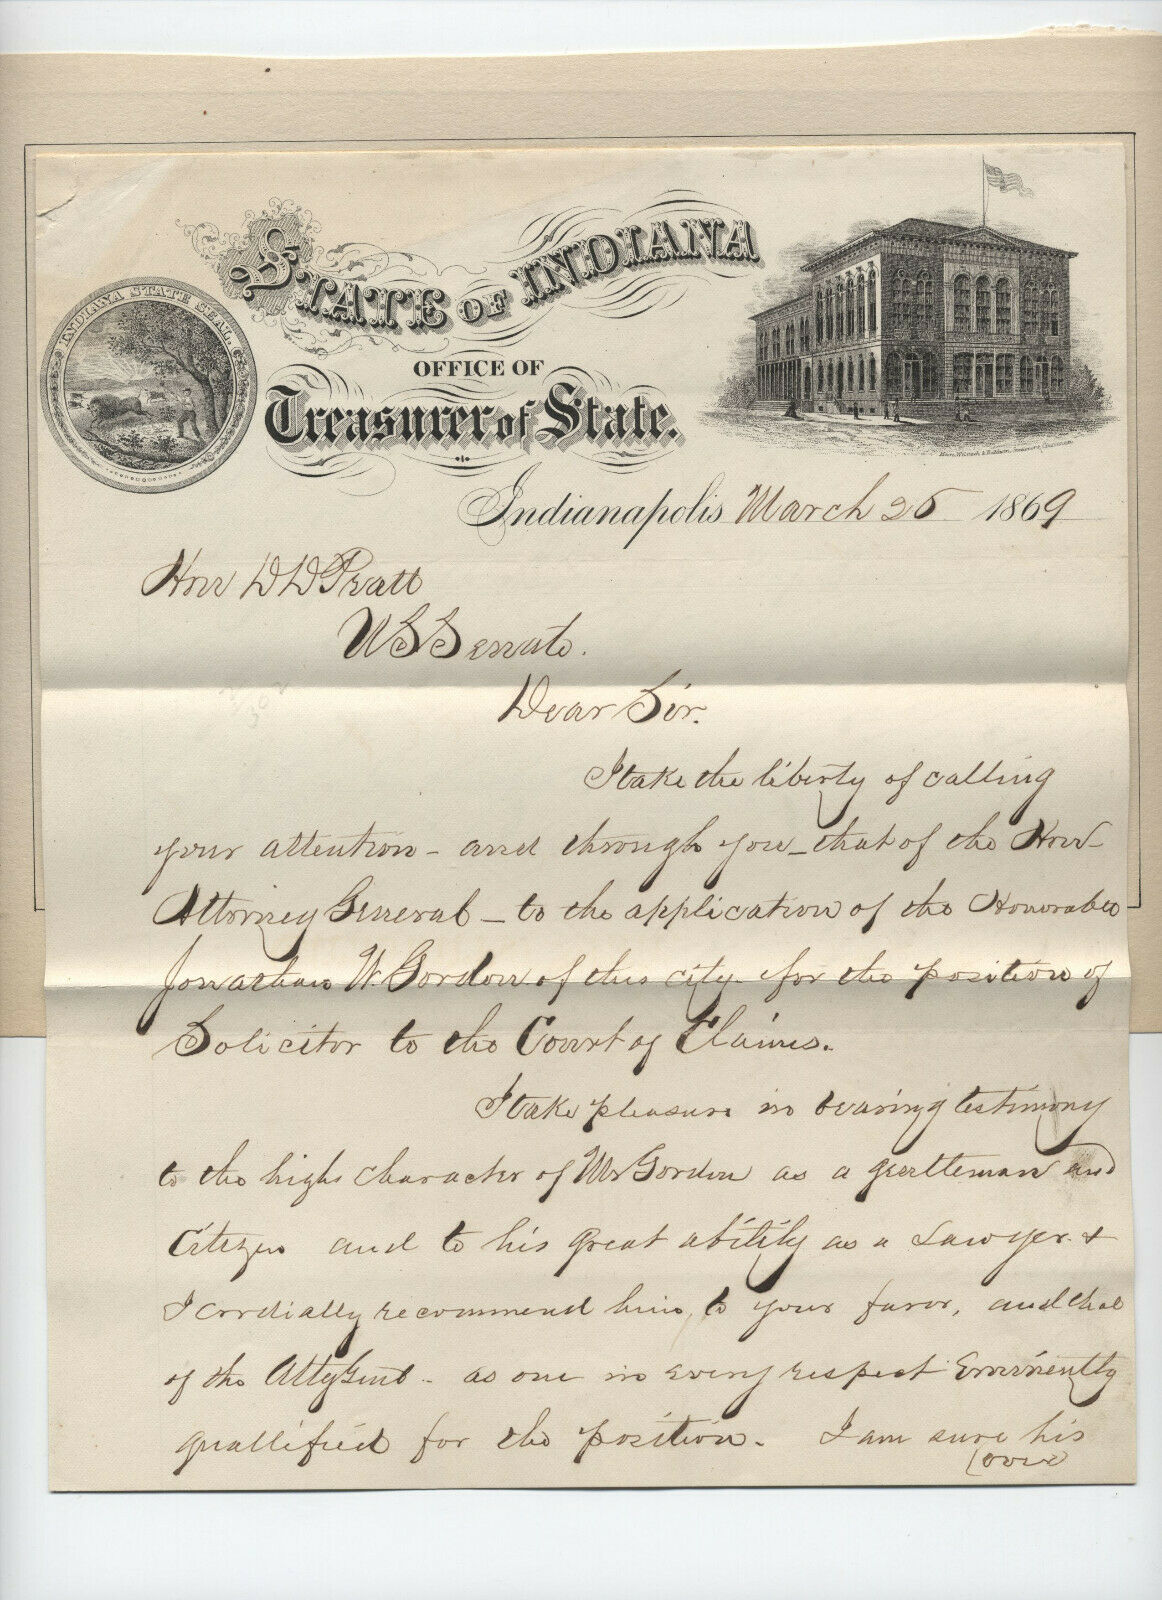 INDIANA STATE SEAL.
STATE OF INDIANA
OFFICE OF
Treasurer of State.
Indianapolis March 25 1869
Hon D D Pratt
U S Senate.
Dear Sir.
I take the liberty of calling
your attention - and through you - that of the Hon
Attorney General - to the application of the Honorable
Jonathan W. Gordon of this city for the position of
Solicitor to the Court of Claims.
I take pleasure in bearing testimony
to the high character of Mr Gordon as a gentleman and
Citizen and to his great ability as a Lawyer. &
I cordially recommend him to your favor, and that
of the Atty Genl - as one in every respect Eminently
quallified for the position. I am sure his
(over